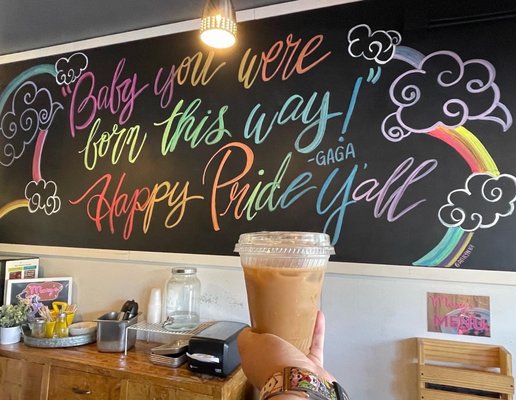 "Baby you were
born this way!"
-GAGA
Happy Pride Y'all
MENU